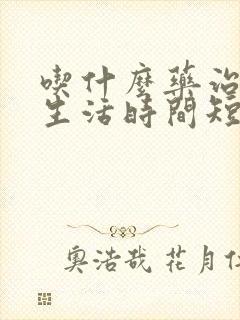 喫什麼藥治
生活時間短
奧浩哉 花月仁